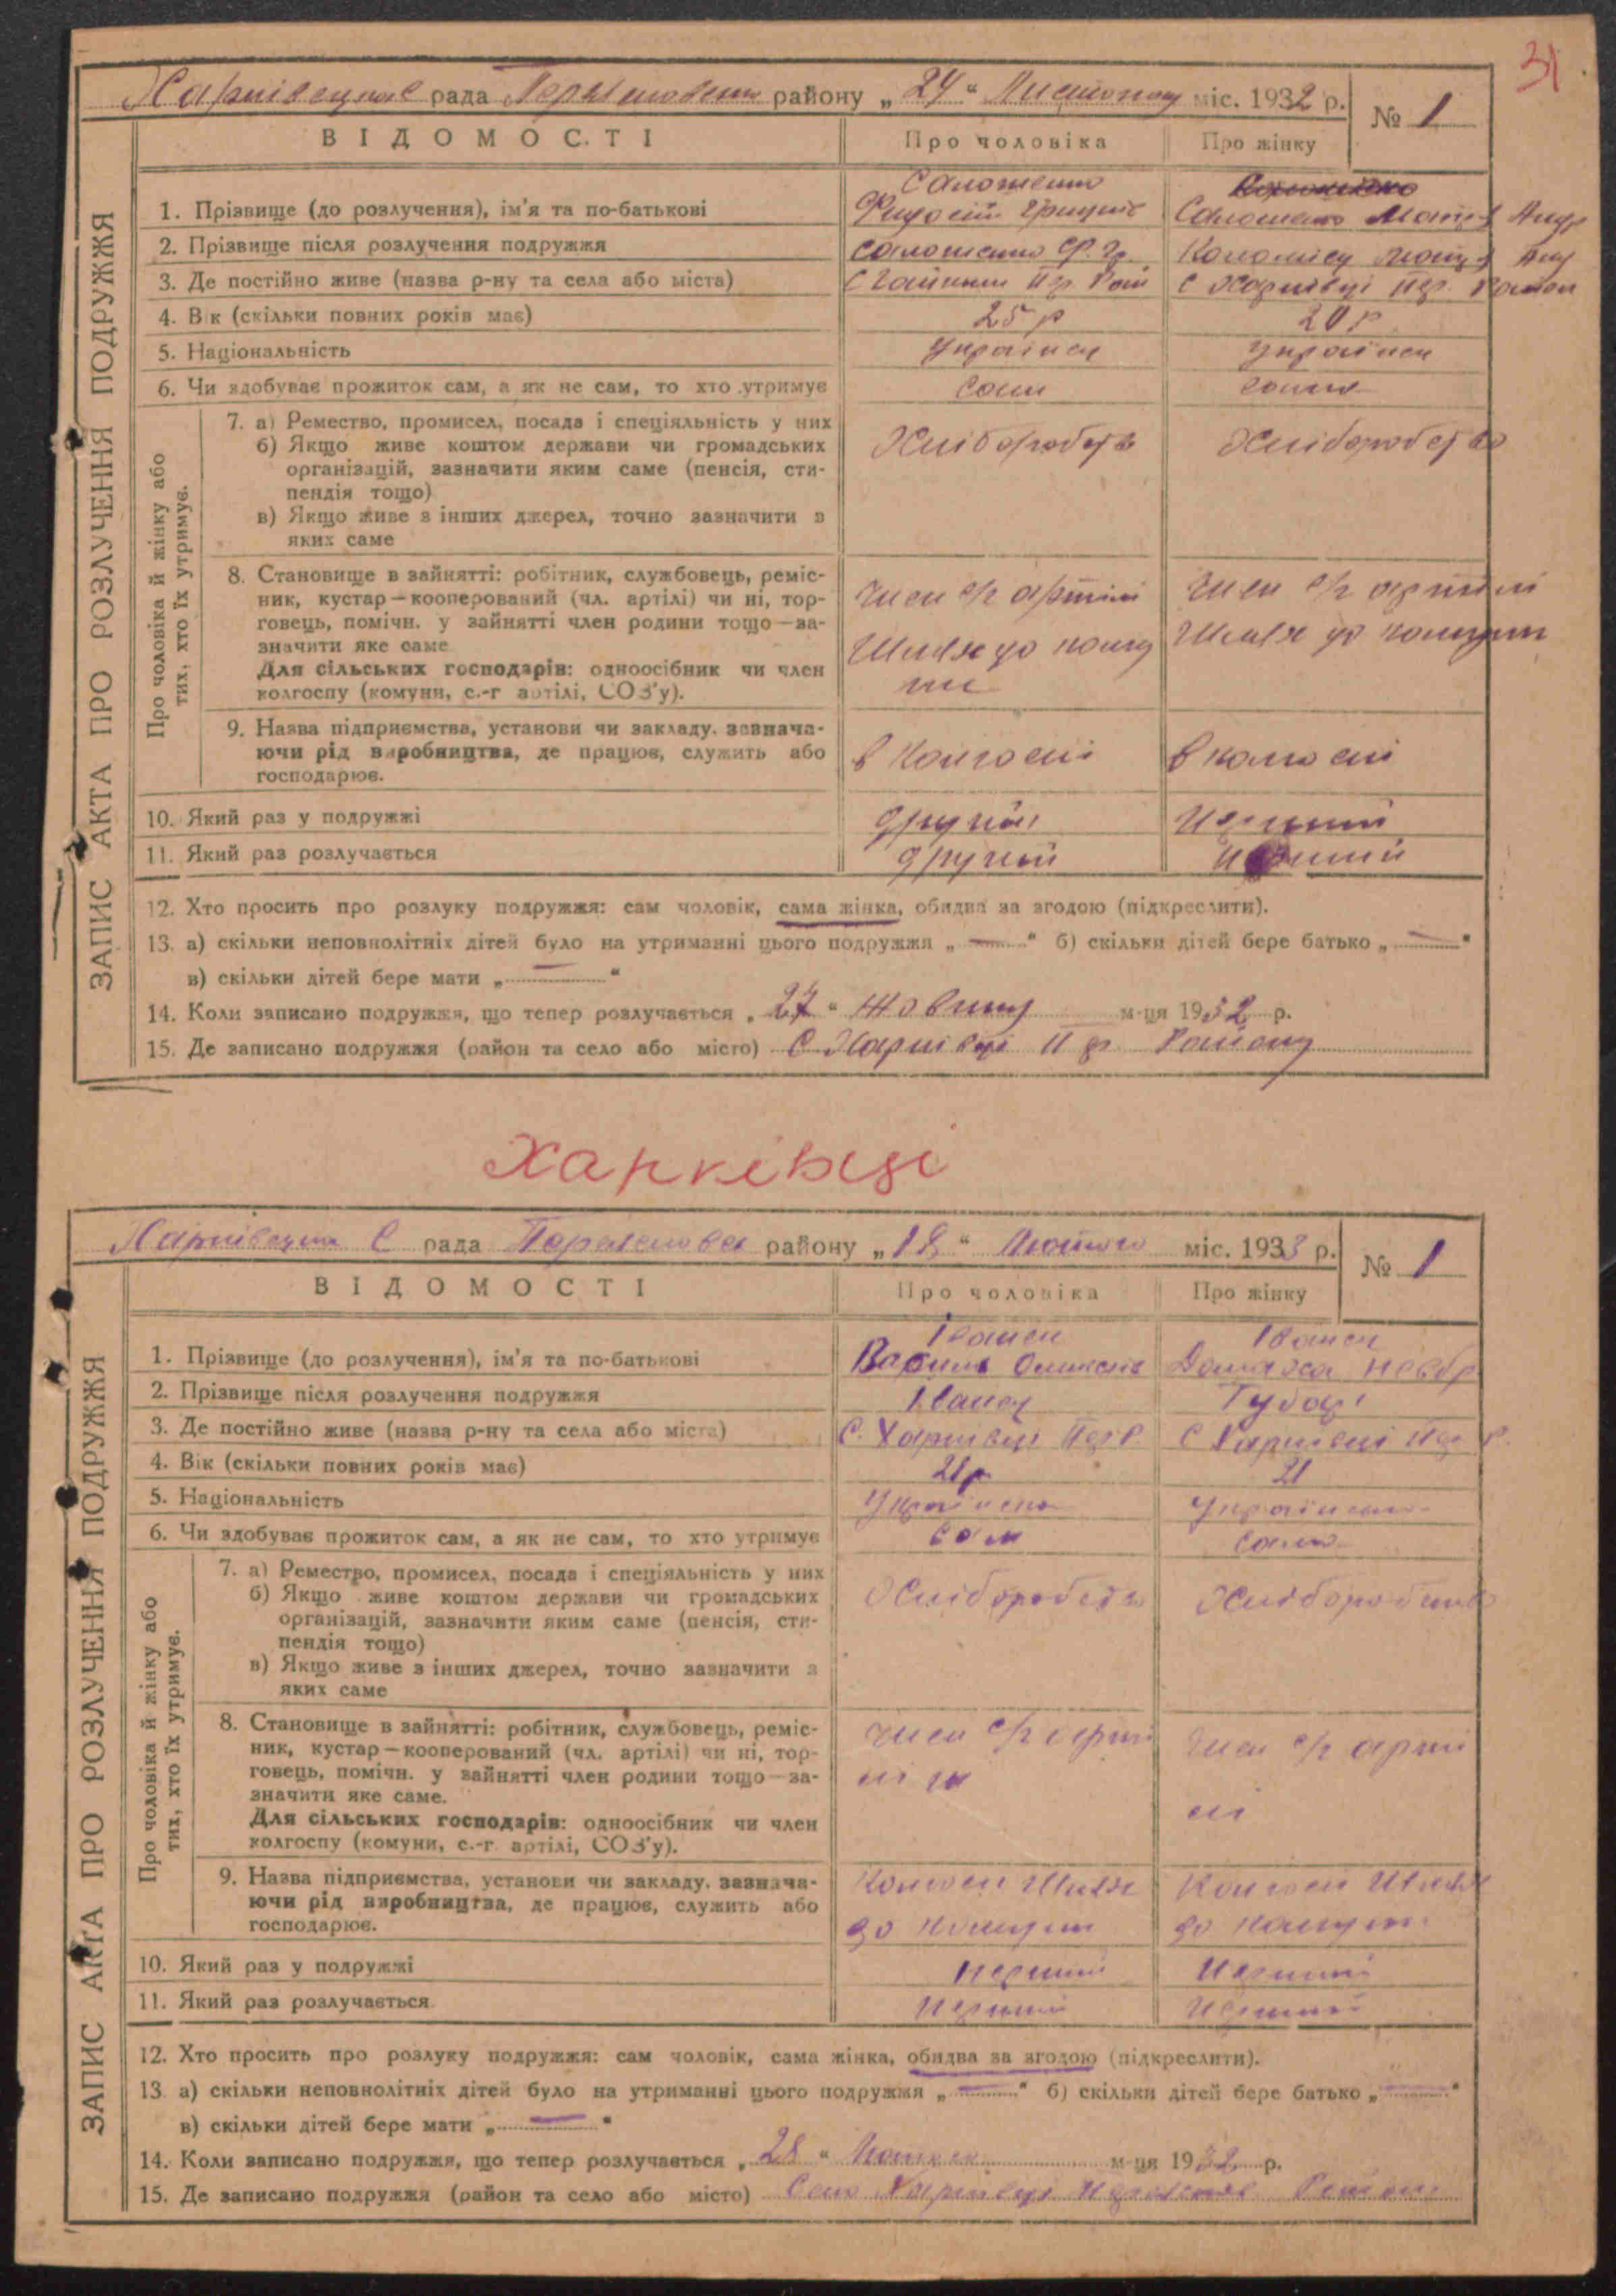 31
Харківецька С рада Переяславськ району „ 24 “ Листопаду міс. 1932 р.
№ 1
ВІДОМОСТІ
Про чоловіка
Про жінку
ЗАПИС АКТА ПРО РОЗЛУЧЕННЯ ПОДРУЖЖЯ
1. Прізвище (до розлучення), ім'я та по-батькові
2. Прізвище після розлучення подружжя
3. Де постійно живе (назва р-ну та села або міста)
С Харківці Пер. Район
4. Вік (скільки повних років має) 25 р 20 р
5. Національність Українец Українец
6. Чи здобуває прожиток сам, а як не сам, то хто утримує сам сама
Про чоловіка й жінку або
тих, хто їх утримує.
7. а) Ремество, промисел, посада і спеціяльність у них
б) Якщо живе коштом держави чи громадських Хліборобств Хліборобство
організацій, зазначити яким саме (пенсія, сти-
пендія тощо)
в) Якщо живе з інших джерел, точно зазначити з
яких саме
8. Становище в зайнятті: робітник, службовець, реміс-
ник, кустар—кооперований (чл. артілі) чи ні, тор- Член с/г артілі Член с/г артілі
говець, помічн. у зайнятті член родини тощо—за-
значити яке саме Шлях до кому Шлях до комуни
Для сільських господарів: одноосібник чи член
колгоспу (комуни, с.-г артілі, СОЗ'у). ни
9. Назва підприємства, установи чи закладу, зазнача-
ючи рід виробництва, де працює, служить або в колгоспі в колгоспі
господарює.
10. Який раз у подружжі другий перший
11. Який раз розлучається другий перший
12. Хто просить про розлуку подружжя: сам чоловік, сама жінка, обидва за згодою (підкреслити).
13. а) скільки неповнолітніх дітей було на утриманні цього подружжя „ — “ б) скільки дітей бере батько „ — “
в) скільки дітей бере мати „ — “
14. Коли записано подружжя, що тепер розлучається „ 27 “ Жовтня м-ця 1932 р.
15. Де записано подружжя (район та село або місто) С Харківці Пер Району
Харківці
Харківецька С рада Переяславськ району „ 18 “ Лютого міс. 1933 р.
№ 1
ВІДОМОСТІ
Про чоловіка
Про жінку
ЗАПИС АКТА ПРО РОЗЛУЧЕННЯ ПОДРУЖЖЯ
Іванец Іванец
1. Прізвище (до розлучення), ім'я та по-батькові Василь
2. Прізвище після розлучення подружжя Іванец
3. Де постійно живе (назва р-ну та села або міста) С. Харківці Пер Р. С Харківці Пер Р.
4. Вік (скільки повних років має) 21 р 21
5. Національність
6. Чи здобуває прожиток сам, а як не сам, то хто утримує сам сама
Про чоловіка й жінку або
тих, хто їх утримує.
7. а) Ремество, промисел, посада і спеціяльність у них
б) Якщо живе коштом держави чи громадських Хліборобств Хліборобство
організацій, зазначити яким саме (пенсія, сти-
пендія тощо)
в) Якщо живе з інших джерел, точно зазначити з
яких саме
8. Становище в зайнятті: робітник, службовець, реміс-
ник, кустар—кооперований (чл. артілі) чи ні, тор- Член с/г арті Член с/г арті
говець, помічн. у зайнятті член родини тощо—за-
значити яке саме. лі
Для сільських господарів: одноосібник чи член
колгоспу (комуни, с.-г. артілі, СОЗ'у).
9. Назва підприємства, установи чи закладу, зазнача- Колгосп Шлях Колгосп Шлях
ючи рід виробництва, де працює, служить або до комуни до комуни
господарює.
10. Який раз у подружжі перший перший
11. Який раз розлучається перший перший
12. Хто просить про розлуку подружжя: сам чоловік, сама жінка, обидва за згодою (підкреслити).
13. а) скільки неповнолітніх дітей було на утриманні цього подружжя „ — “ б) скільки дітей бере батько „ — “
в) скільки дітей бере мати „ — “
14. Коли записано подружжя, що тепер розлучається „ 28 “ Лютого м-ця 1932 р.
15. Де записано подружжя (район та село або місто) Село Харківці